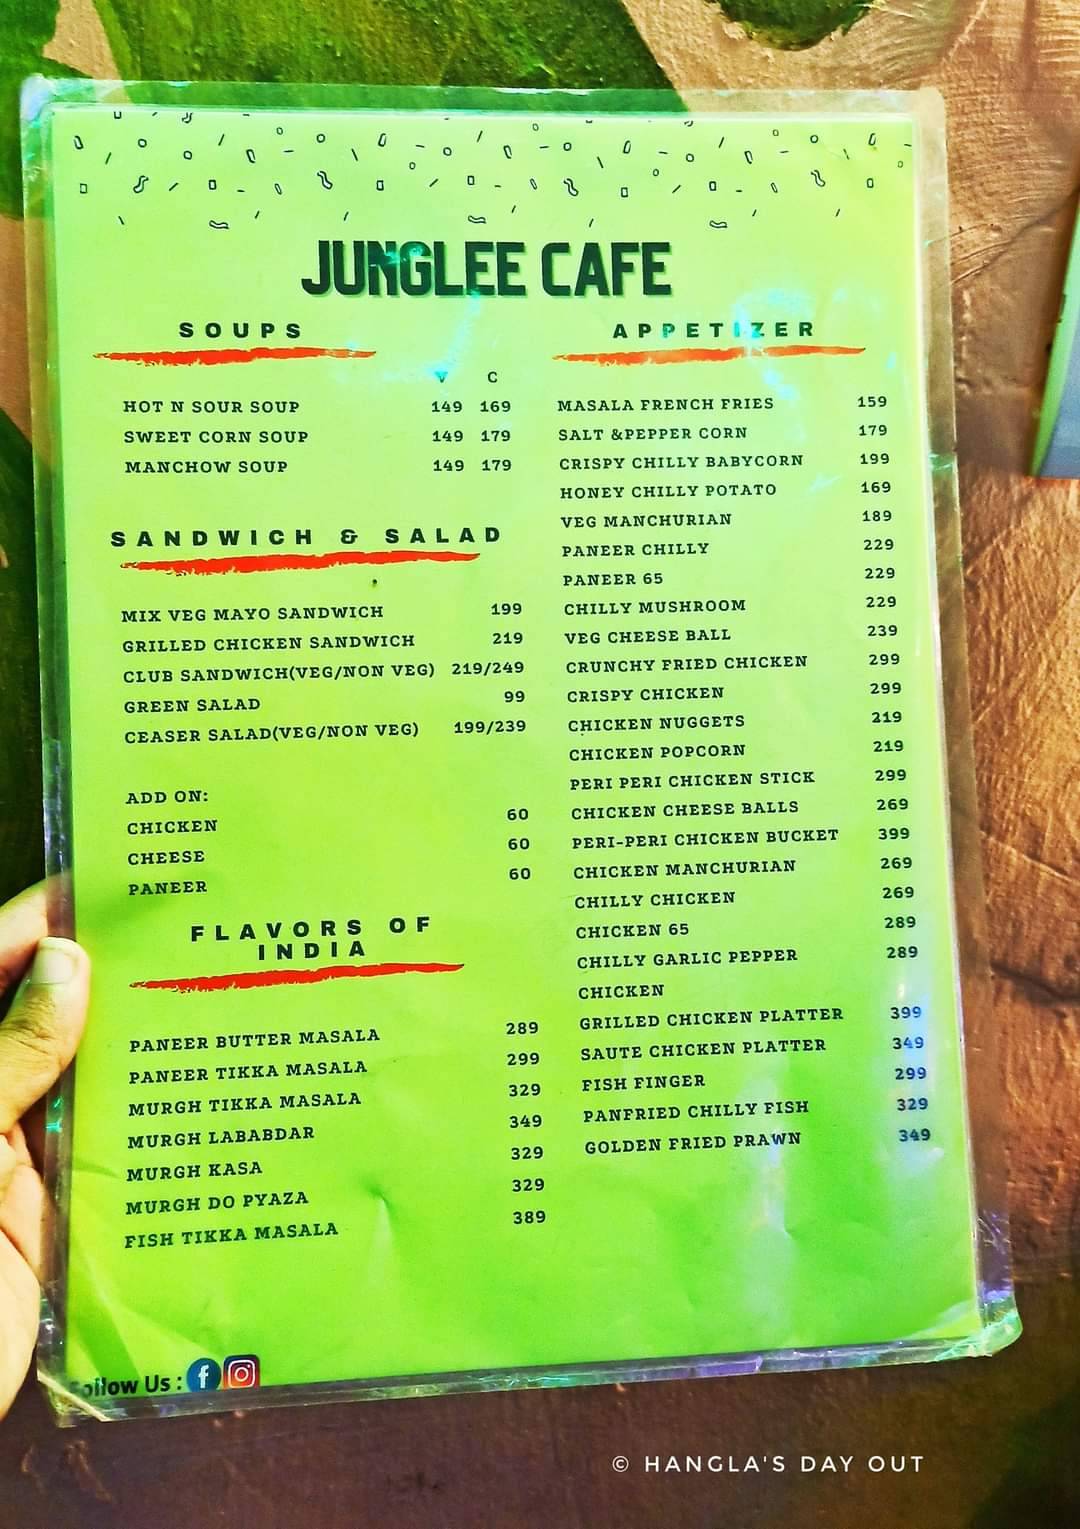 JUNGLEE CAFE
SOUPS
V C
HOT N SOUR SOUP 149 169
SWEET CORN SOUP 149 179
MANCHOW SOUP 149 179
SANDWICH & SALAD
MIX VEG MAYO SANDWICH 199
GRILLED CHICKEN SANDWICH 219
CLUB SANDWICH(VEG/NON VEG) 219/249
GREEN SALAD 99
CEASER SALAD(VEG/NON VEG) 199/239
ADD ON:
CHICKEN 60
CHEESE 60
PANEER 60
FLAVORS OF
INDIA
PANEER BUTTER MASALA 289
PANEER TIKKA MASALA 299
MURGH TIKKA MASALA 329
MURGH LABABDAR 349
MURGH KASA 329
MURGH DO PYAZA 329
FISH TIKKA MASALA 389
APPETIZER
MASALA FRENCH FRIES 159
SALT &PEPPER CORN 179
CRISPY CHILLY BABYCORN 199
HONEY CHILLY POTATO 169
VEG MANCHURIAN 189
PANEER CHILLY 229
PANEER 65 229
CHILLY MUSHROOM 229
VEG CHEESE BALL 239
CRUNCHY FRIED CHICKEN 299
CRISPY CHICKEN 299
CHICKEN NUGGETS 219
CHICKEN POPCORN 219
PERI PERI CHICKEN STICK 299
CHICKEN CHEESE BALLS 269
PERI-PERI CHICKEN BUCKET 399
CHICKEN MANCHURIAN 269
CHILLY CHICKEN 269
CHICKEN 65 289
CHILLY GARLIC PEPPER 289
CHICKEN
GRILLED CHICKEN PLATTER 399
SAUTE CHICKEN PLATTER 349
FISH FINGER 299
PANFRIED CHILLY FISH 329
GOLDEN FRIED PRAWN 349
Follow Us :
© HANGLA'S DAY OUT